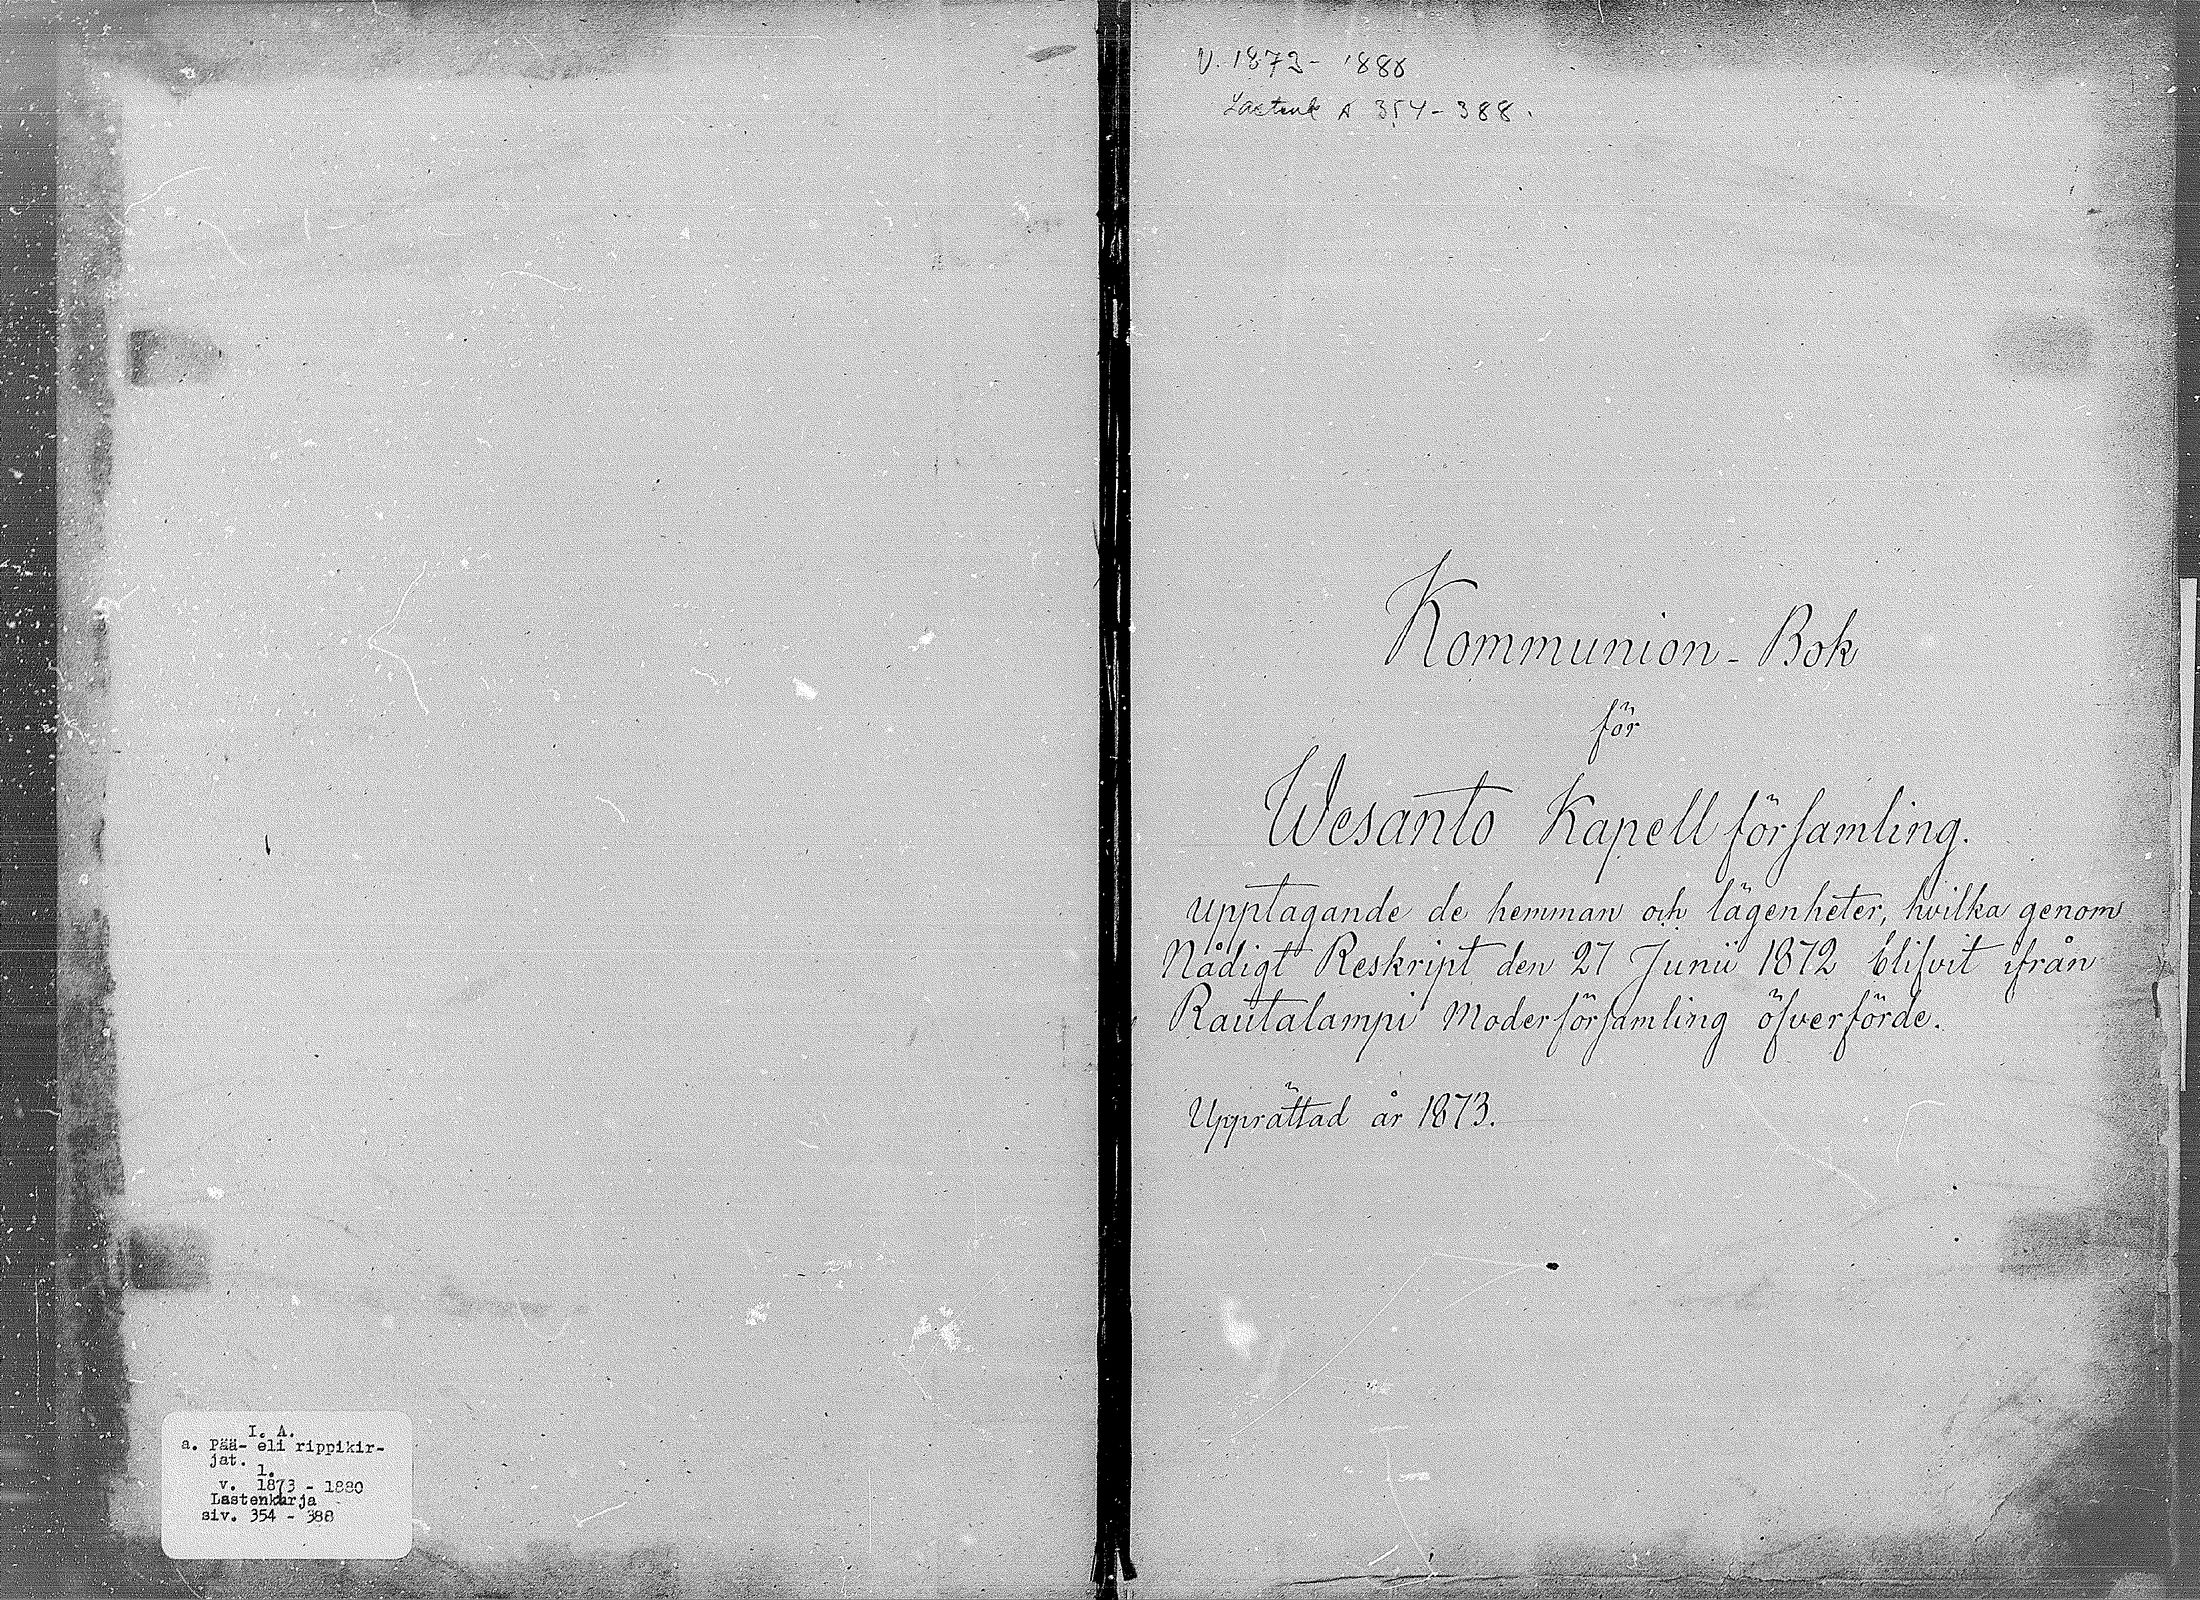 I. A.
a. Pää- eli rippikir-
jat.
1.
v. 1873 - 1880
Lastenkirja
siv. 354 - 388
V. 1873 - 1880
Lastenk s 354 - 388.
Kommunion - Bok
för
Wesanto Kapellförsamling.
upptagande de hemman och lägenheter, hvilka genom
Nådigt Reskript den 27 Junii 1872 blifvit ifrån
Rautalampi Moderförsamling öfverförde.
Upprättad år 1873.